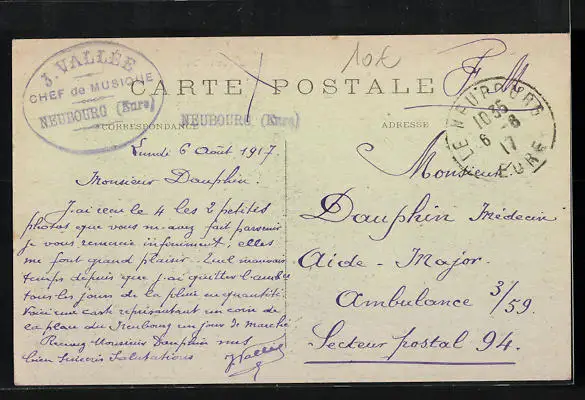 J. VALLÉE
CHEF de MUSIQUE
NEUBOURG (Eure)
10€
F. M
CARTE POSTALE
CORRESPONDANCE
NEUBOURG (Eure)
ADRESSE
LE NEUBOURG
10 35
6 - 8
17
EURE
Lundi 6 Août 1917
Monsieur Dauphin.
J'ai reçu le 4 les 2 petites
photos que vous m'avez fait parvenir
je vous remercie infiniment, elles
me font grand plaisir. mauvais
temps depuis que j'ai quitter
tous les jours de la pluie en quantité.
Voici une carte représentant un coin de
la place du Neubourg un jour de marché
Recevez Monsieur Dauphin mes
bien sincères Salutations
J Vallée
Monsieur
Dauphin Médecin
Aide-Major.
Ambulance 3/59.
Secteur postal 94.